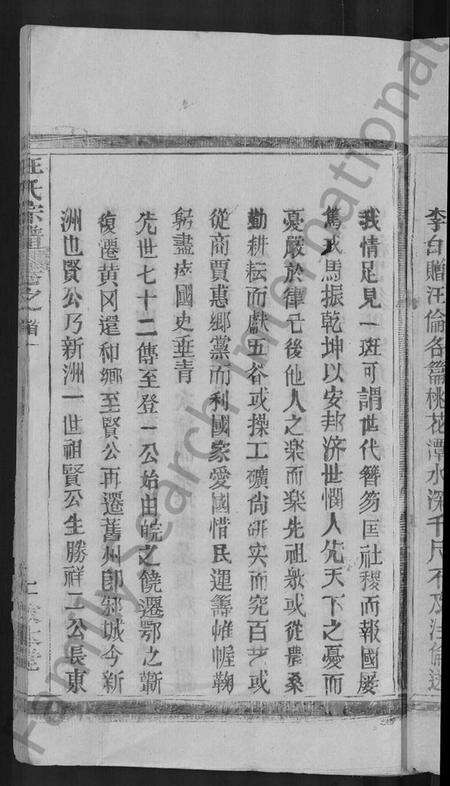 李白贈汪倫各篇桃花潭水深千尺不及汪倫送
我情足見一班可謂世代簪笏匡社稷而報國屡
戎馬振乾坤以安邦济世憫人先天下之憂而
憂嚴於律己後他人之楽而楽先祖教或從農桑
勤耕耘而献五谷或操工礦尙研实而究百艺或
從商賈惠鄉黨而利國家愛國惜民運籌帷幄鞠
躬盡瘁國史垂青
先世七十二傳至登一公始由皖之饒遷鄂之蘄
復遷黄冈還和鄉至賢公再遷舊州即邾城今新
洲也賢公乃新洲一世祖賢公生勝祥二公長東
汪氏宗譜
卷之首
Family Search International